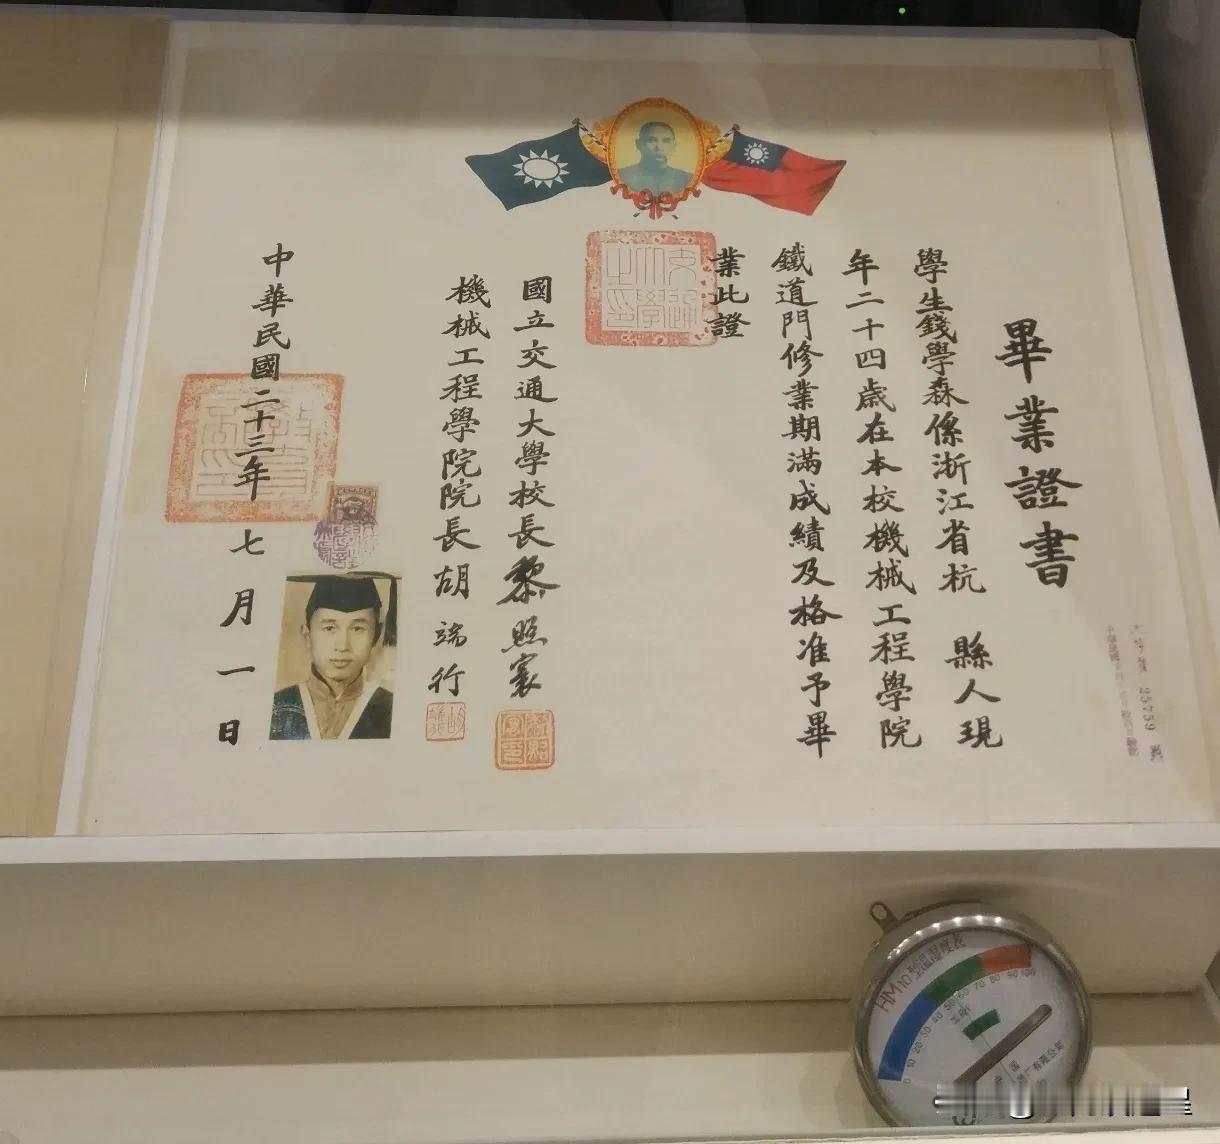 畢業證書
學生錢學森係浙江省杭 縣人現
年二十四歲在本校機械工程學院
鐵道門修業期滿成績及格准予畢
業此證
國立交通大學校長黎照寰
機械工程學院院長胡端行
中華民國二十三年七月一日
25759
HM10
0 10 20 30 40 50 60 70 80 90 100